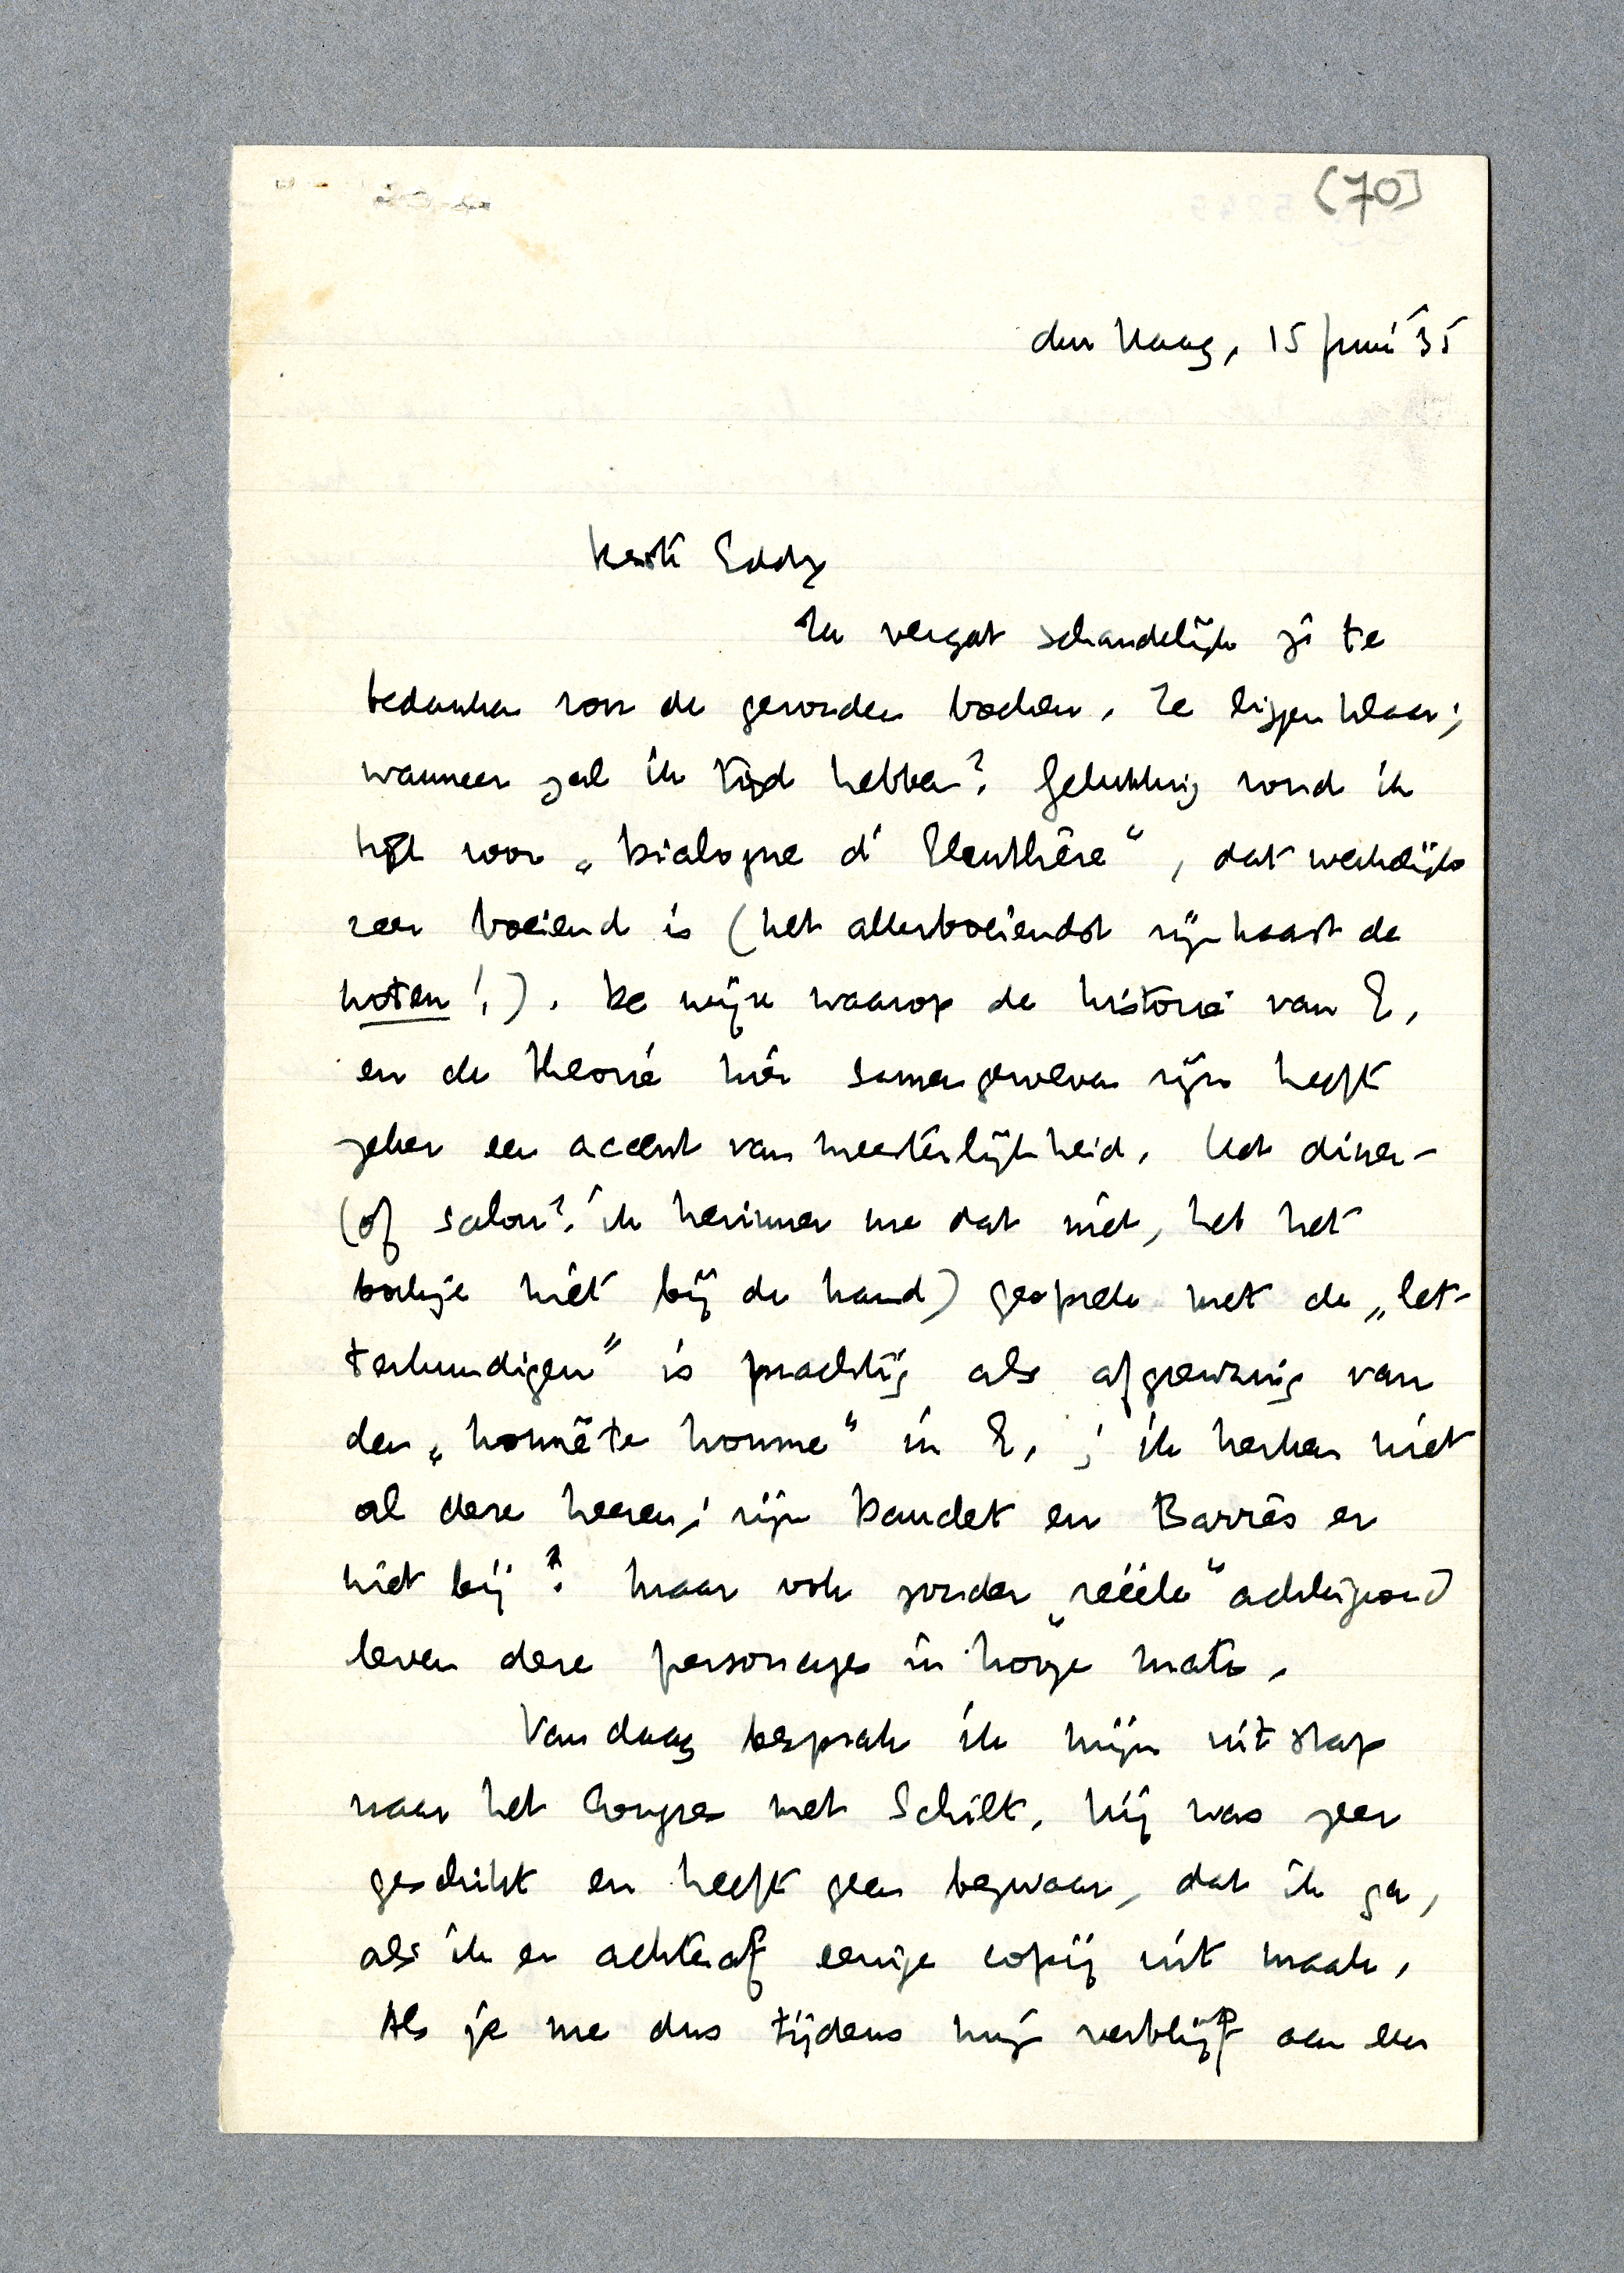 [70]
den Haag, 15 Juni '35
Beste Eddy
Ik vergat schandelijk je te
bedanken voor de gezonden boeken. Ze liggen klaar;
wanneer zal ik tijd hebben? Gelukkig vond ik
tijd voor „Dialogue d'Eleuthère“, dat werkelijk
zeer boeiend is (het allerboeiendst zijn haast de
noten!). De wijze waarop de historie van E.
en de theorie hier samengeweven zijn heeft
zeker een accent van meesterlijkheid. Het diner-
(of salon? ik herinner me dat niet, heb het
boekje niet bij de hand) gesprek met de „let-
terkundigen” is prachtig als afgrenzing van
den „honnête homme“ in E.; ik herken niet
al deze heeren; zijn Daudet en Barrès er
niet bij? Maar ook zonder „reëele“ achtergrond
leven deze personages in hooge mate.
Vandaag besprak ik mijn uitstap
naar het Congres met Schilt. Hij was zeer
geschikt en heeft geen bezwaar, dat ik ga,
als ik er achteraf eenige copij uit maak.
Als je me dus tijdens mijn verblijf aan een